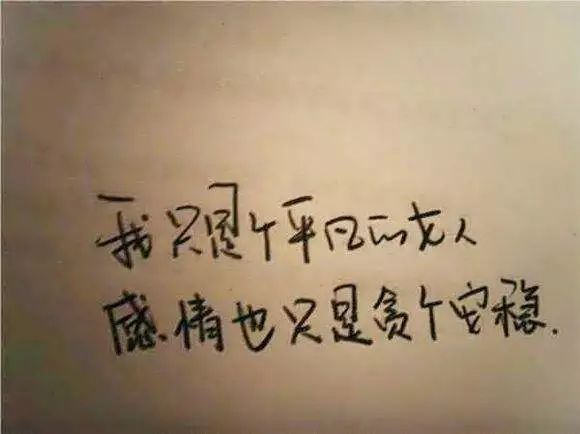 我只是个平凡的女人
感情也只是贪个安稳.